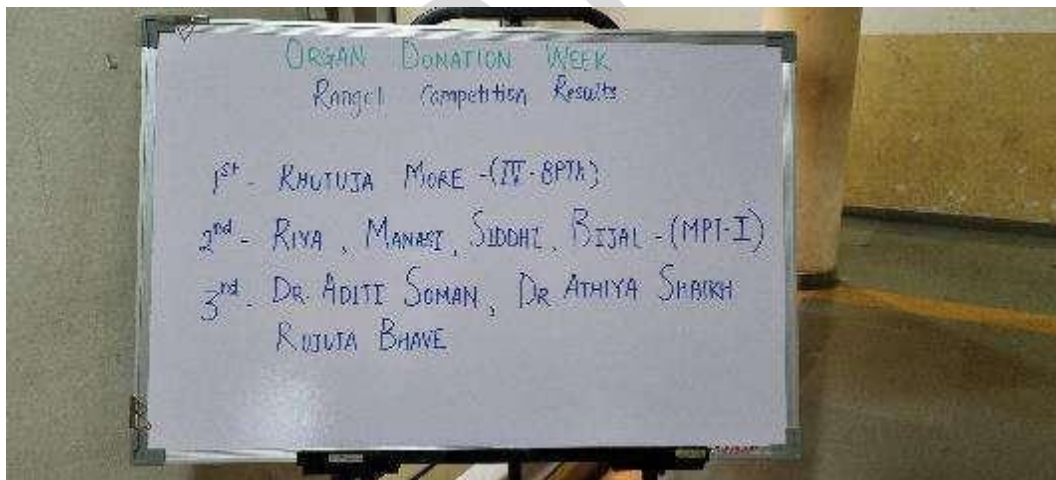 ORGAN DONATION WEEK
Rangoli Competition Results
1st - RHUTUJA MORE - (IV - BPTh)
2nd - RIYA, MANASI, SIDDHI, BIJAL - (MPT-I)
3rd - DR. ADITI SOMAN, DR ATHIYA SHAIKH
RUJUTA BHAVE